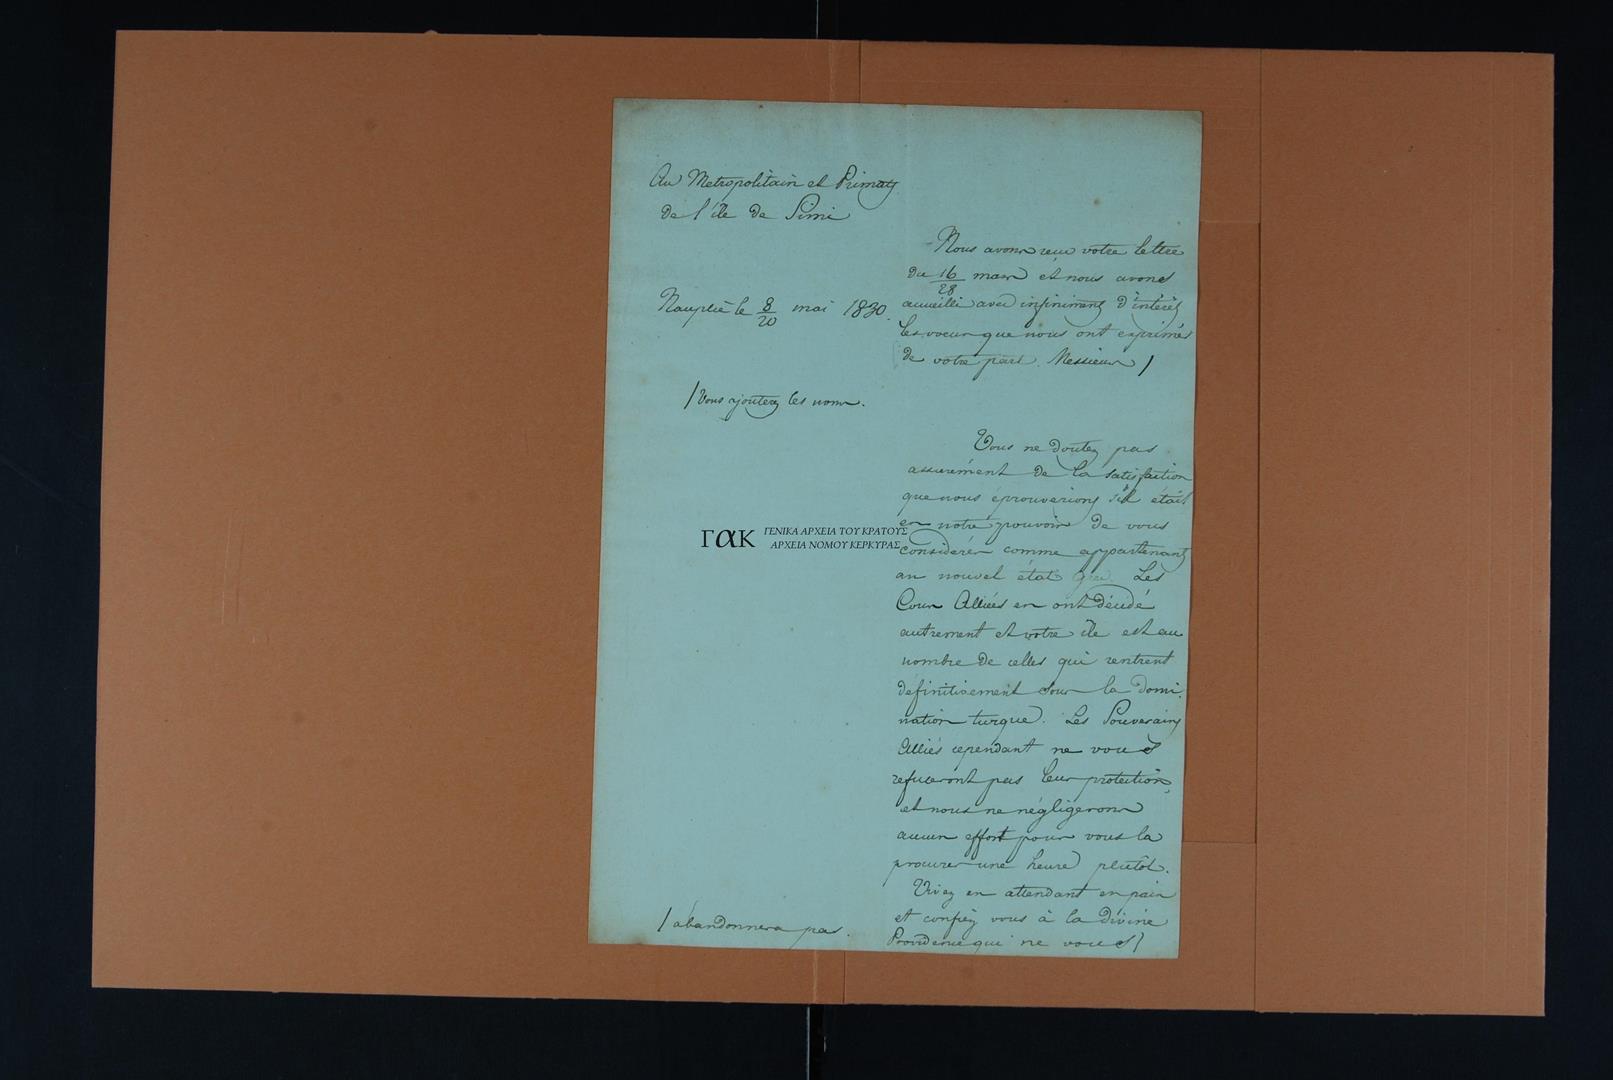 Au Metropolitain et Primats
de l'île de Simi
Nauplie le 8/20 mai 1830.
/ Vous ajouterez les noms.
Nous avons reçu votre lettre
du 16/28 mars et nous avons
accueilli avec infiniment d'intérêt
les voeux que nous ont exprimés
de votre part Messieurs /
Vous ne doutez pas
assurément de la satisfaction
que nous éprouverions s'il était
en notre pouvoir de vous
considérer comme appartenant
au nouvel état grec. Les
Cours Alliées en ont décidé
autrement et votre île est au
nombre de celles qui rentrent
définitivement sous la domi
nation turque. Les Souverains
Alliés cependant ne vous
refuseront pas leur protection,
et nous ne négligerons
aucun effort pour vous la
procurer une heure plutôt.
Vivez en attendant en paix
et confiez vous à la divine
Providence qui ne vous /
/ abandonnera pas.
ΓΑΚ ΓΕΝΙΚΑ ΑΡΧΕΙΑ ΤΟΥ ΚΡΑΤΟΥΣ
ΑΡΧΕΙΑ ΝΟΜΟΥ ΚΕΡΚΥΡΑΣ